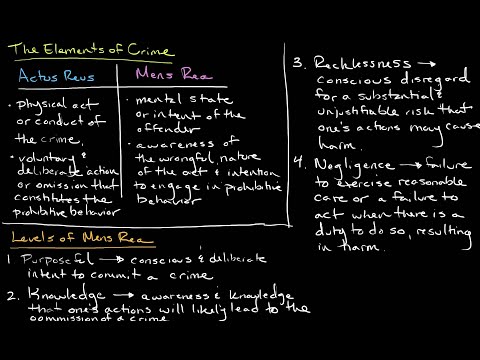 The Elements of Crime
Actus Reus
• physical act
or conduct of
the crime.
• voluntary &
deliberate action
or omission that
constitutes the
prohibitive behavior
Mens Rea
• mental state
or intent of the
offender
• awareness of
the wrongful nature
of the act & intention
to engage in prohibitive
behavior
Levels of Mens Rea
1. Purposeful → conscious & deliberate
intent to commit a crime
2. Knowledge → awareness & knowledge
that one's actions will likely lead to the
commission of a crime
3. Recklessness →
conscious disregard
for a substantial &
unjustifiable risk that
one's actions may cause
harm.
4. Negligence → failure
to exercise reasonable
care or a failure to
act when there is a
duty to do so, resulting
in harm.